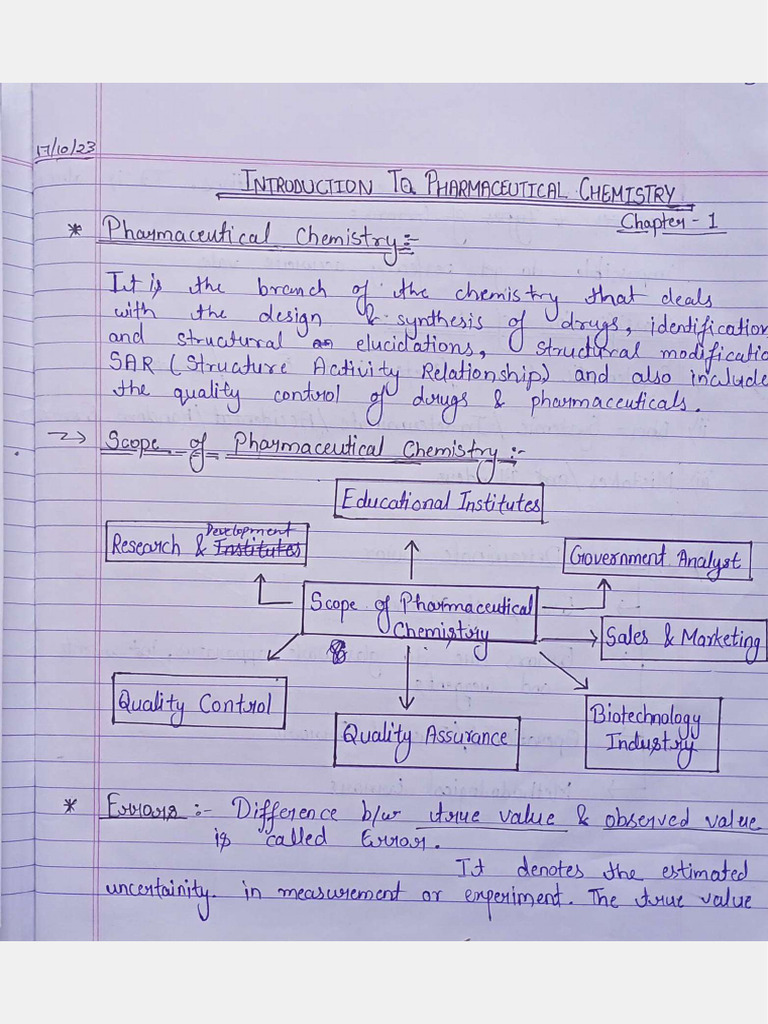 17/10/23
INTRODUCTION TO PHARMACEUTICAL CHEMISTRY
Chapter - 1
* Pharmaceutical Chemistry :-
It is the branch of the chemistry that deals
with the design & synthesis of drugs, identification
and structural elucidations, structural modificatio
SAR (Structure Activity Relationship) and also include
the quality control of drugs & pharmaceuticals.
→ Scope of Pharmaceutical Chemistry :-
Educational Institutes
Development
Research & Institutes
Government Analyst
Scope of Pharmaceutical
Chemistry
Sales & Marketing
Quality Control
Quality Assurance
Biotechnology
Industry
* Errors :- Difference b/w true value & observed value
is called Error.
It denotes the estimated
uncertainity. in measurement or experiment. The true value